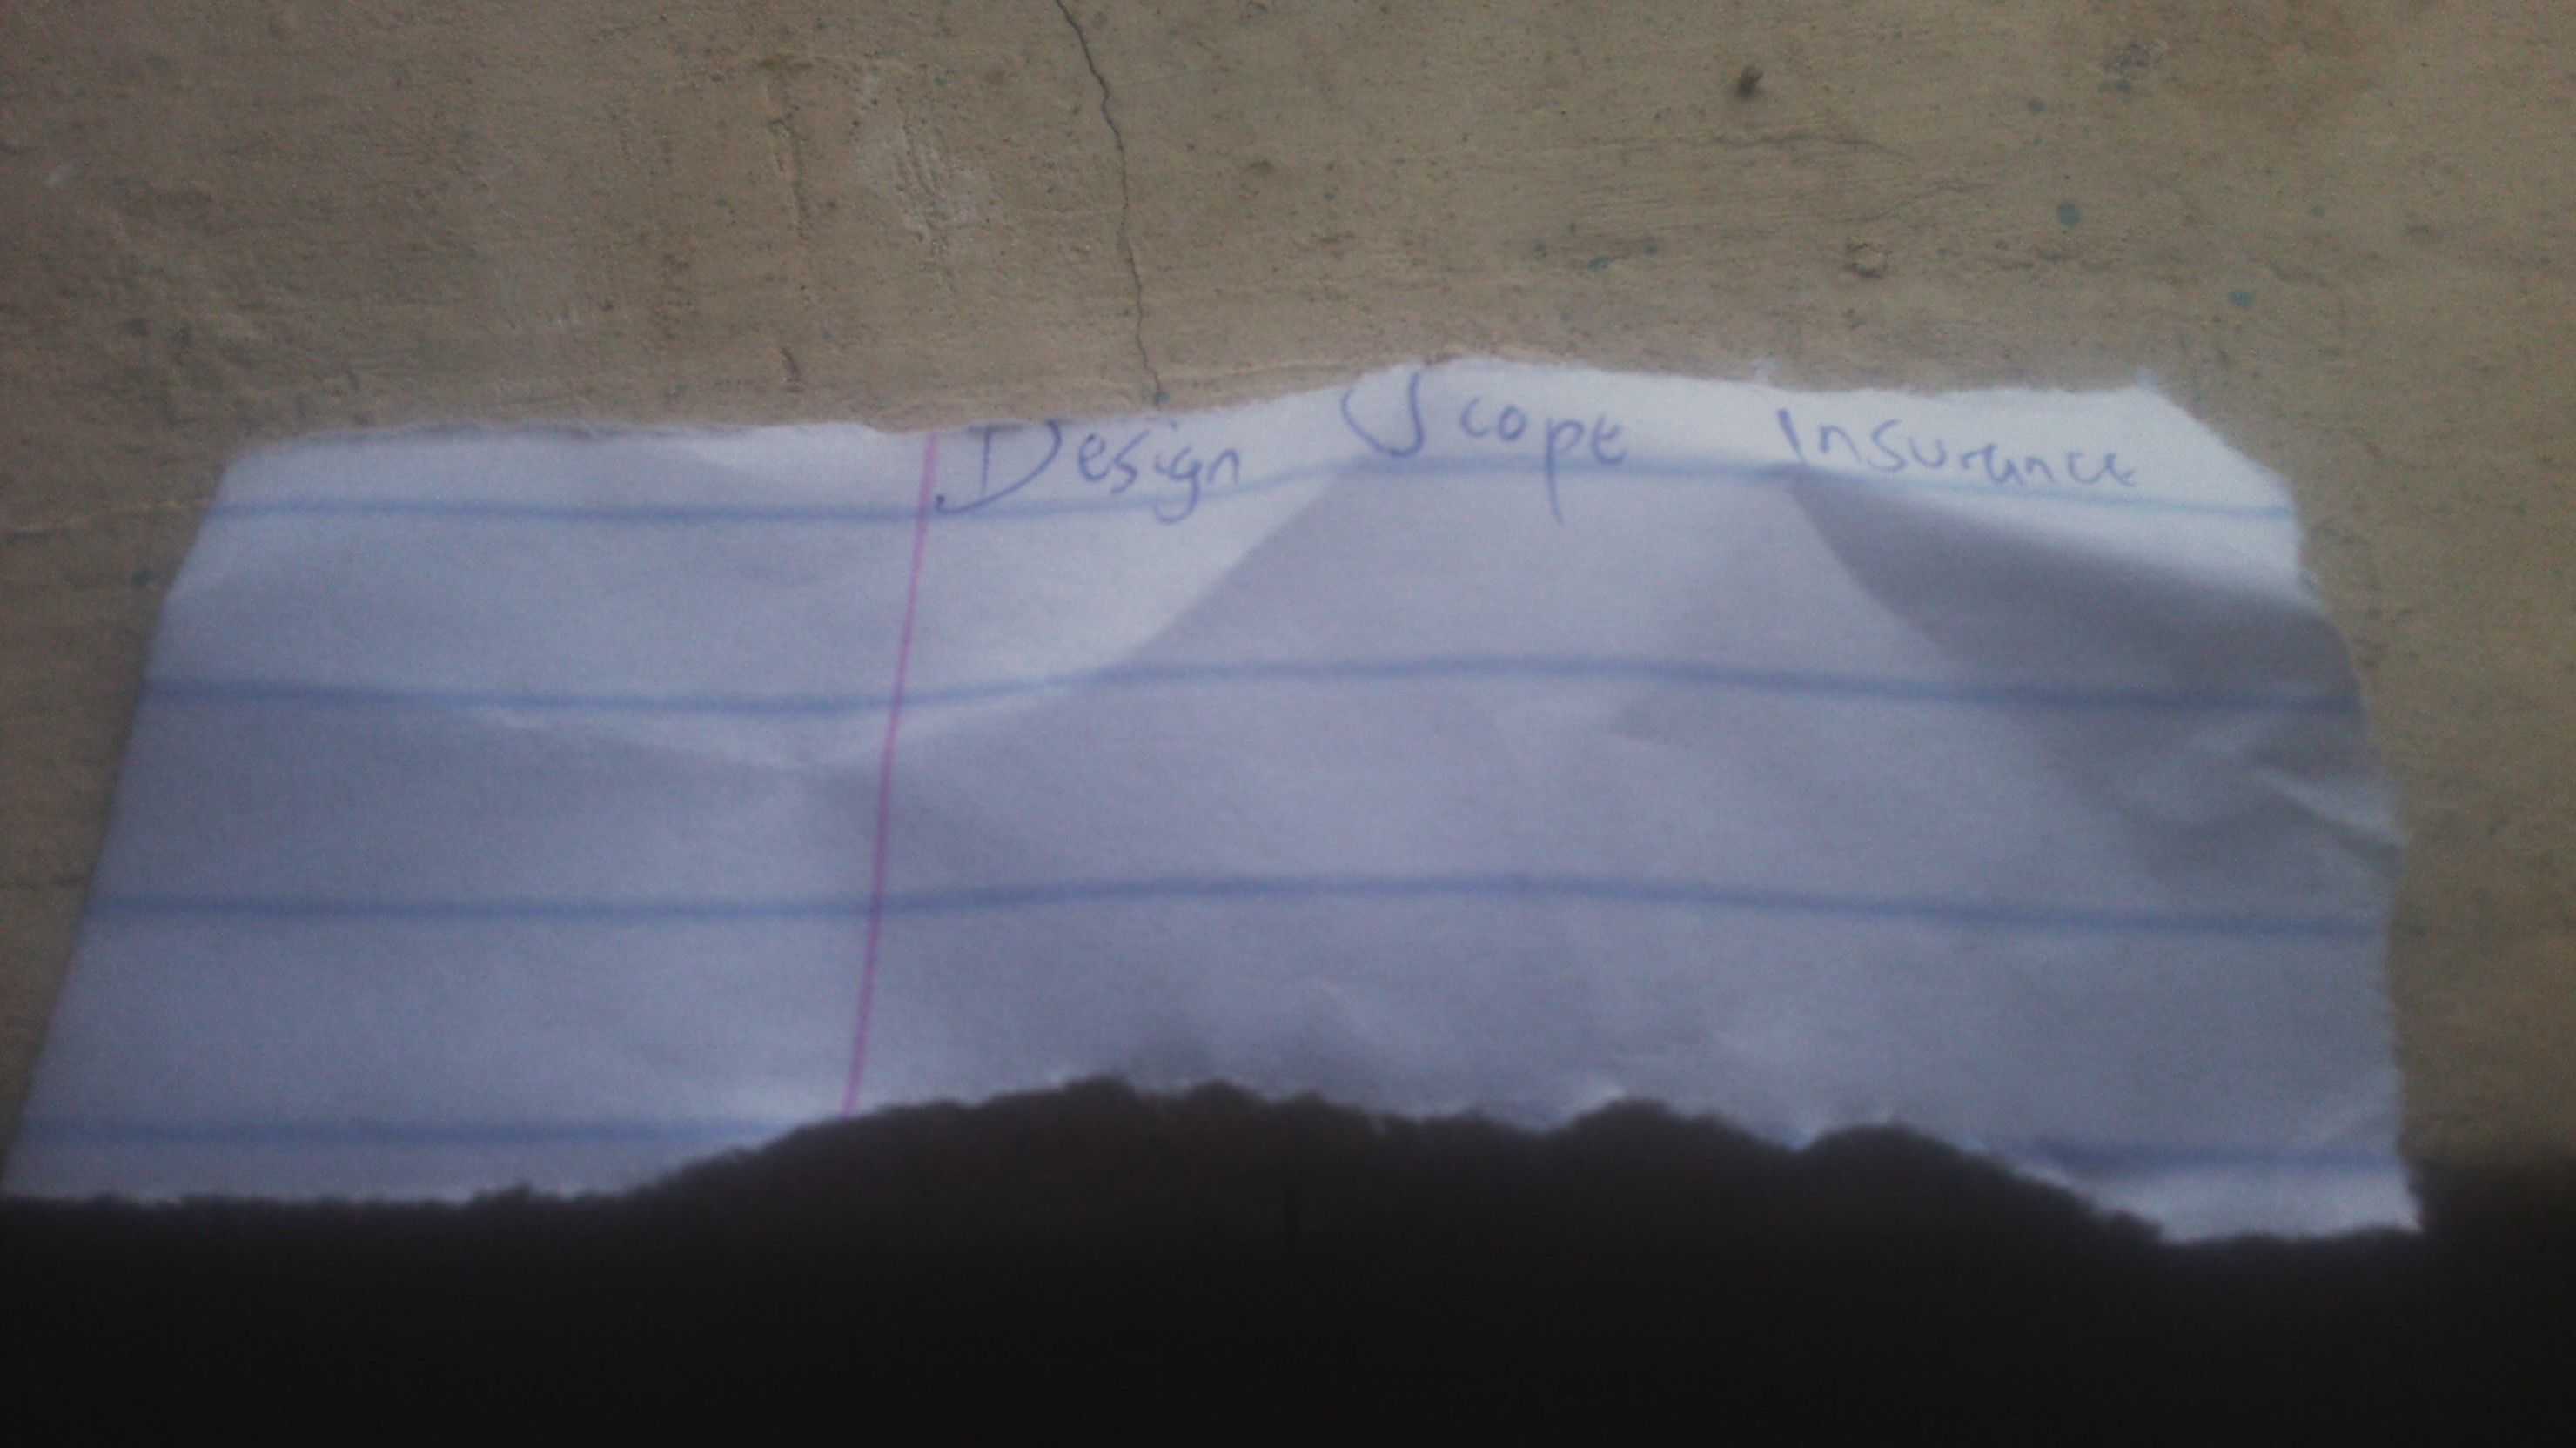 Design Scope Insurance